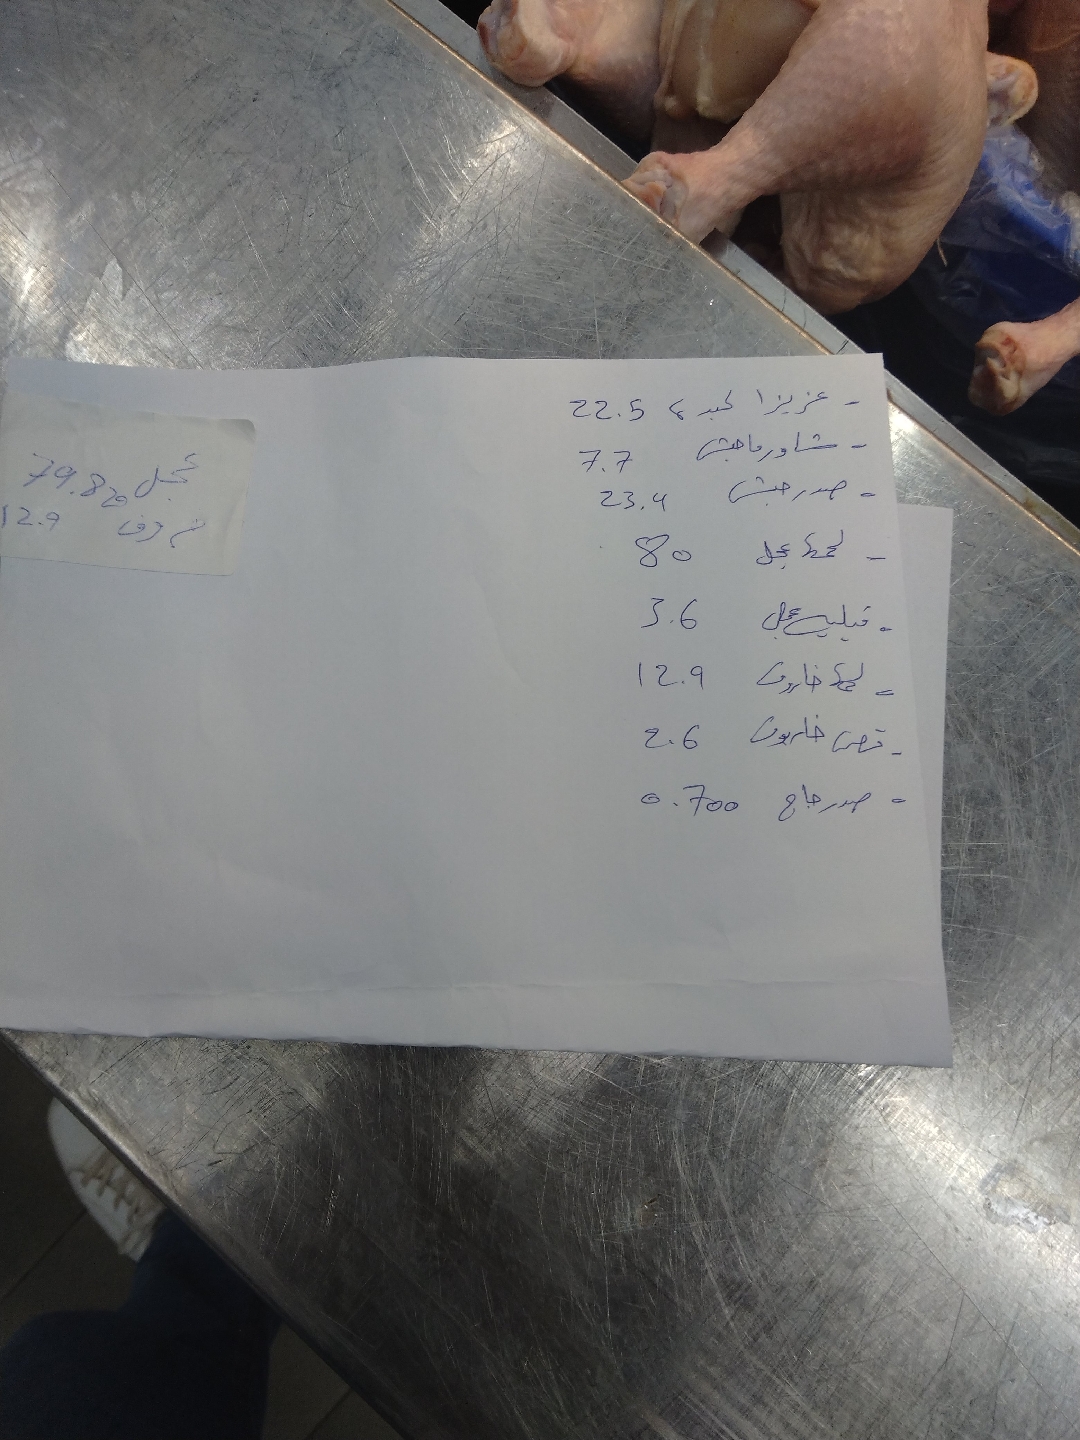 - عزيزا لحبد 22.5
- شاورما حبش 7.7
- صدر حبش 23.4
- لحمة عجل 80
- فيليه عجل 3.6
- لحمة خاروف 12.9
- قص خاروف 2.6
- صدر جاج 0.700
عجل 79.820
خروف 12.9